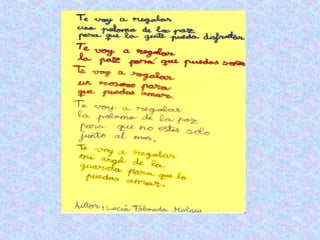 Te voy a regalar
una paloma de la paz
para que la gente pueda disfrutar.
Te voy a regalar
la paz para que puedas
Te voy a regalar
un para
que puedas amar.
Te voy a regalar
la paloma de la paz
para que no estés solo
junto al mar.
Te voy a regalar
mi ángel de la
guarda para que lo
puedas amar.
Autor: Lucía Taboada Molina